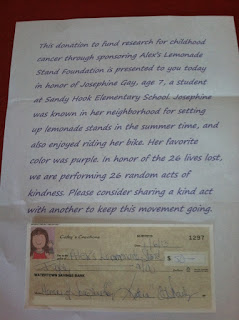 This donation to fund research for childhood
cancer through sponsoring Alex's Lemonade
Stand Foundation is presented to you today
in honor of Josephine Gay, age 7, a student
at Sandy Hook Elementary School. Josephine
was known in her neighborhood for setting
up lemonade stands in the summer time, and
also enjoyed riding her bike. Her favorite
color was purple. In honor of the 26 lives lost,
we are performing 26 random acts of
kindness. Please consider sharing a kind act
with another to keep this movement going.
1297
Alex's Lemonade
SAVINGS BANK